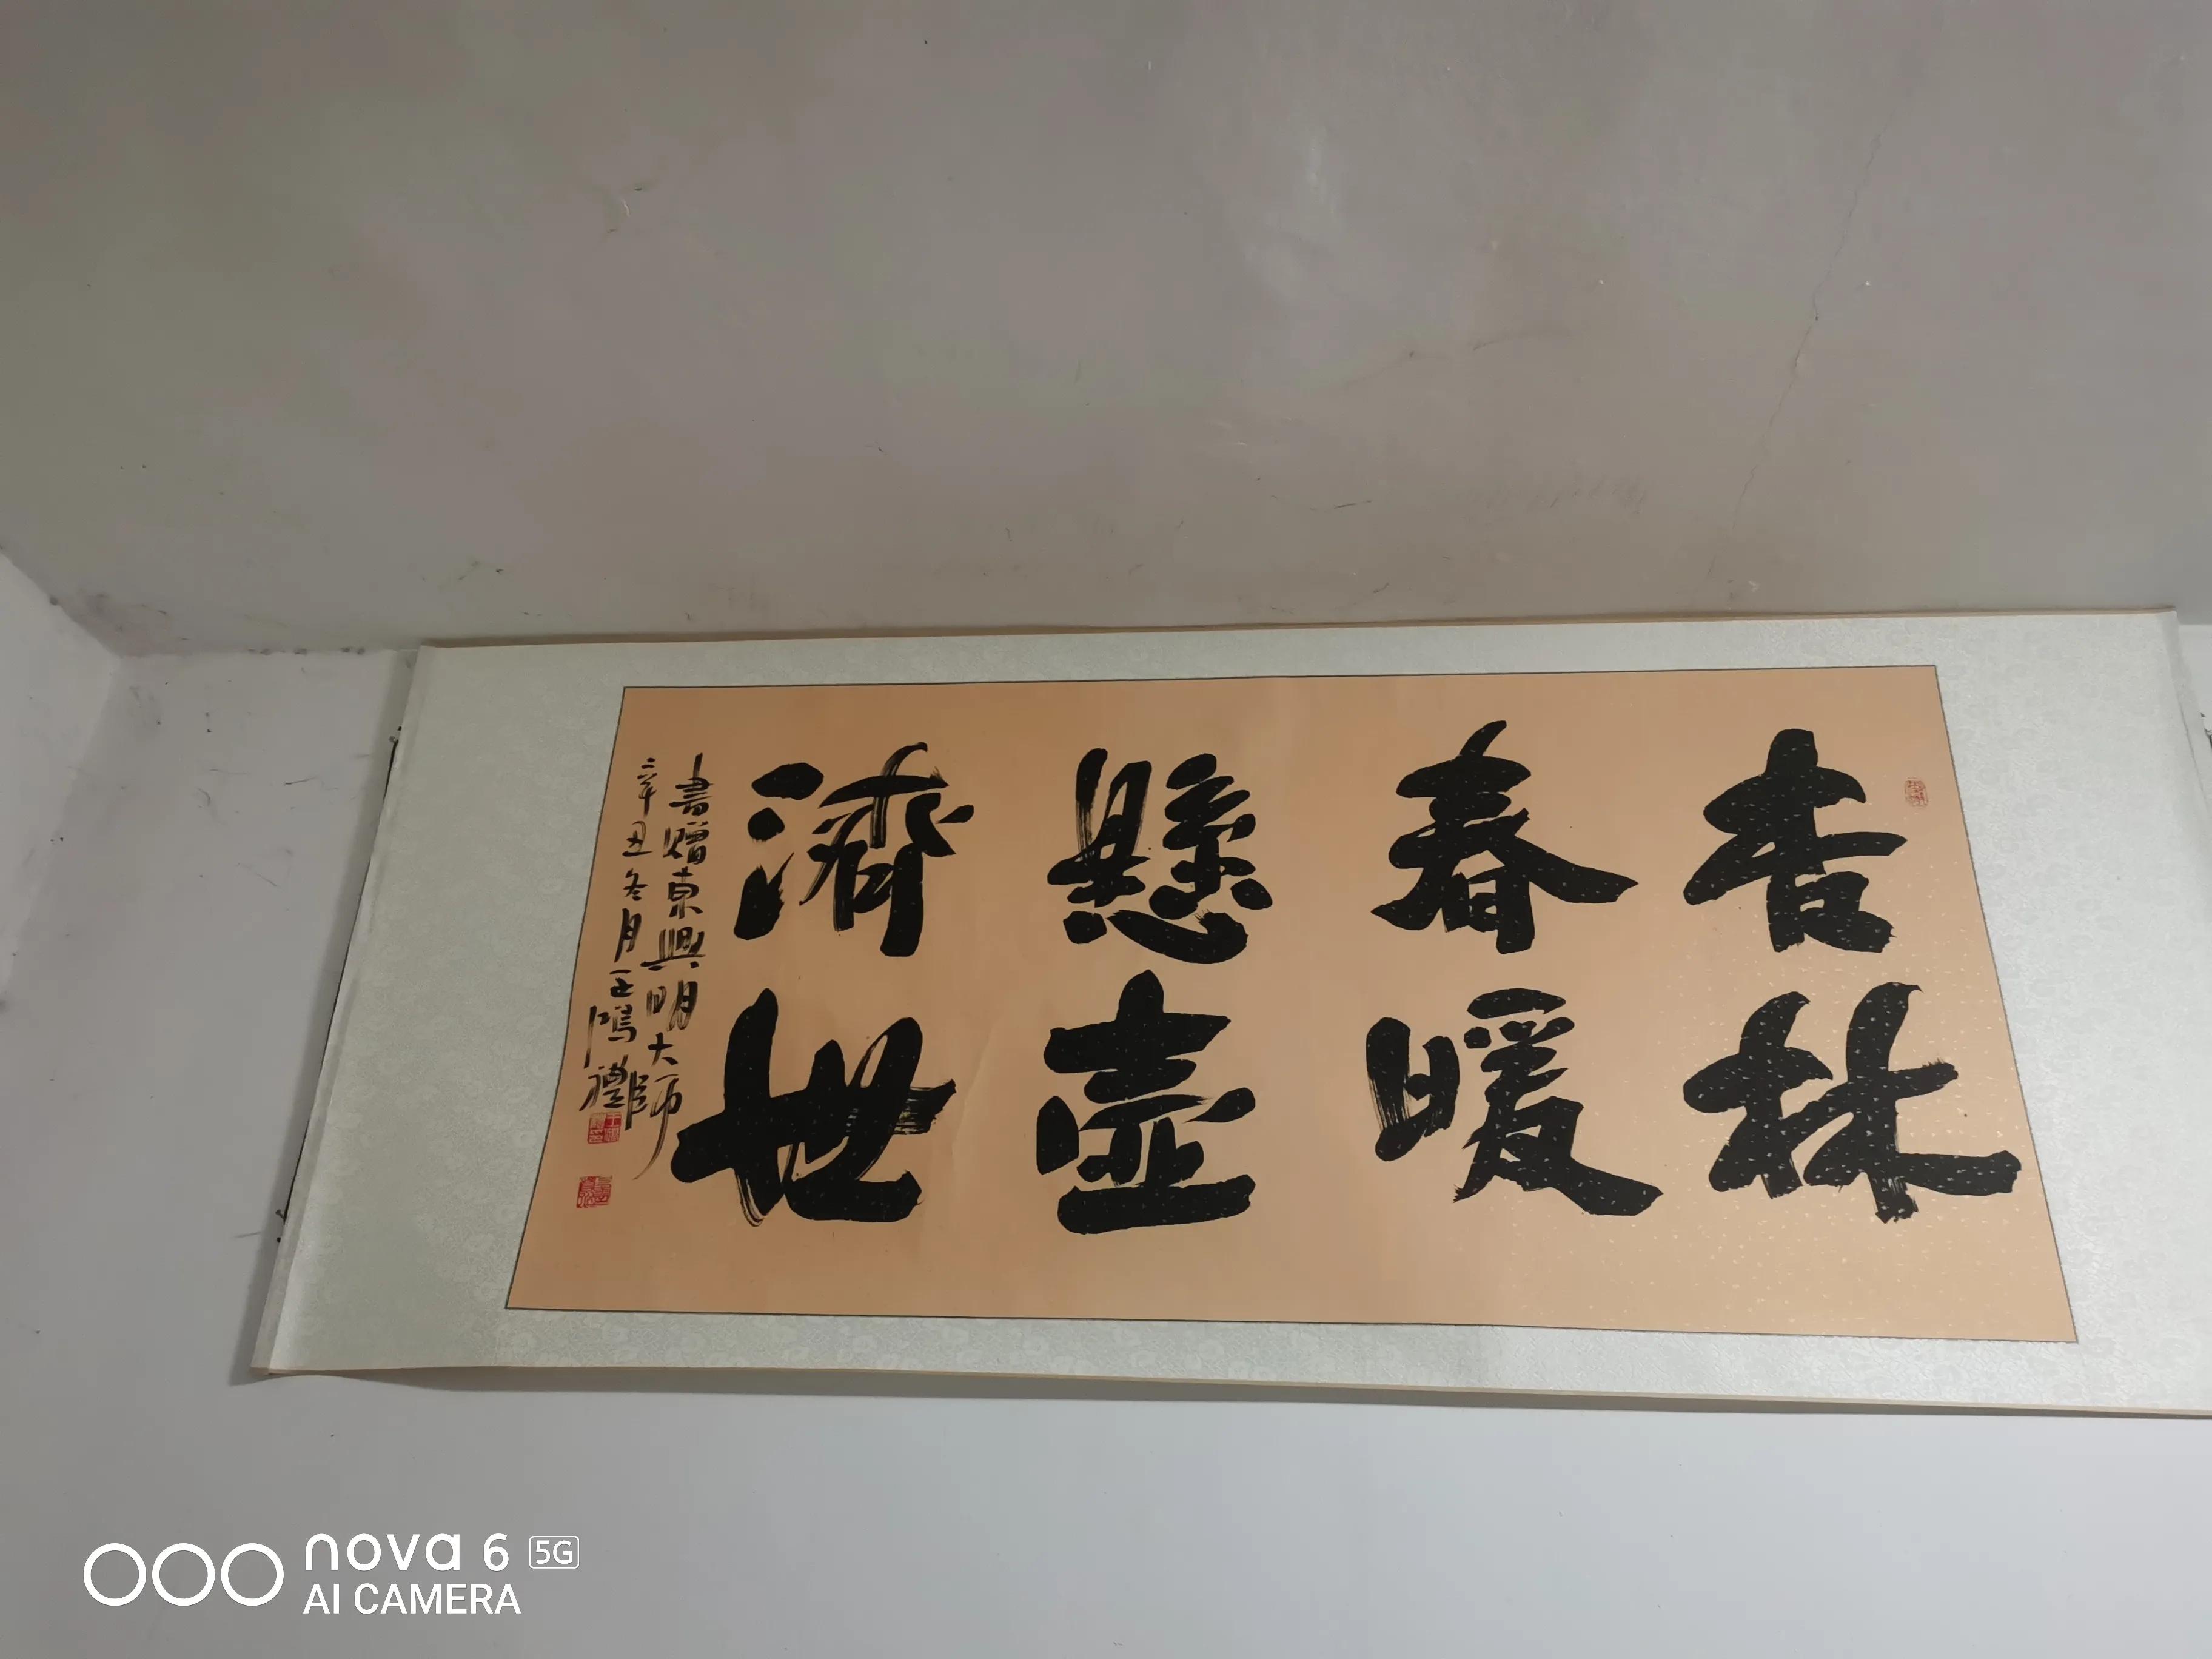 杏林
春暖
懸壺
濟世
書贈東興明大師
辛丑冬月王鴻禮
nova 6 5G
AI CAMERA